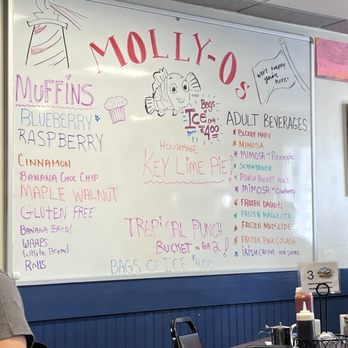 MOLLY-O's
we're happy
you're
here!
MUFFINS
BLUEBERRY
RASPBERRY
CINNAMON
BANANA CHOC CHIP
MAPLE WALNUT
GLUTEN FREE
WRAPS
White Bread
ROLLS
BAGS
of
ICE
$4.00
HOMEMADE
KEY LIME PIE!
TROPICAL PUNCH
BUCKET for 2!
BAGS OF ICE $4.00
ADULT BEVERAGES
* BLOODY MARY
* MIMOSA
* MIMOSA w/Pineapple
* SCREWDRIVER
* PUNCH BUCKET FOR 2
* MIMOSA w/Cranberry
* FROZEN DAIQUIRI
* FROZEN MARGARITA
* FROZEN MUDSLIDE
* FROZEN PINA COLADA
* IRISH COFFEE
3